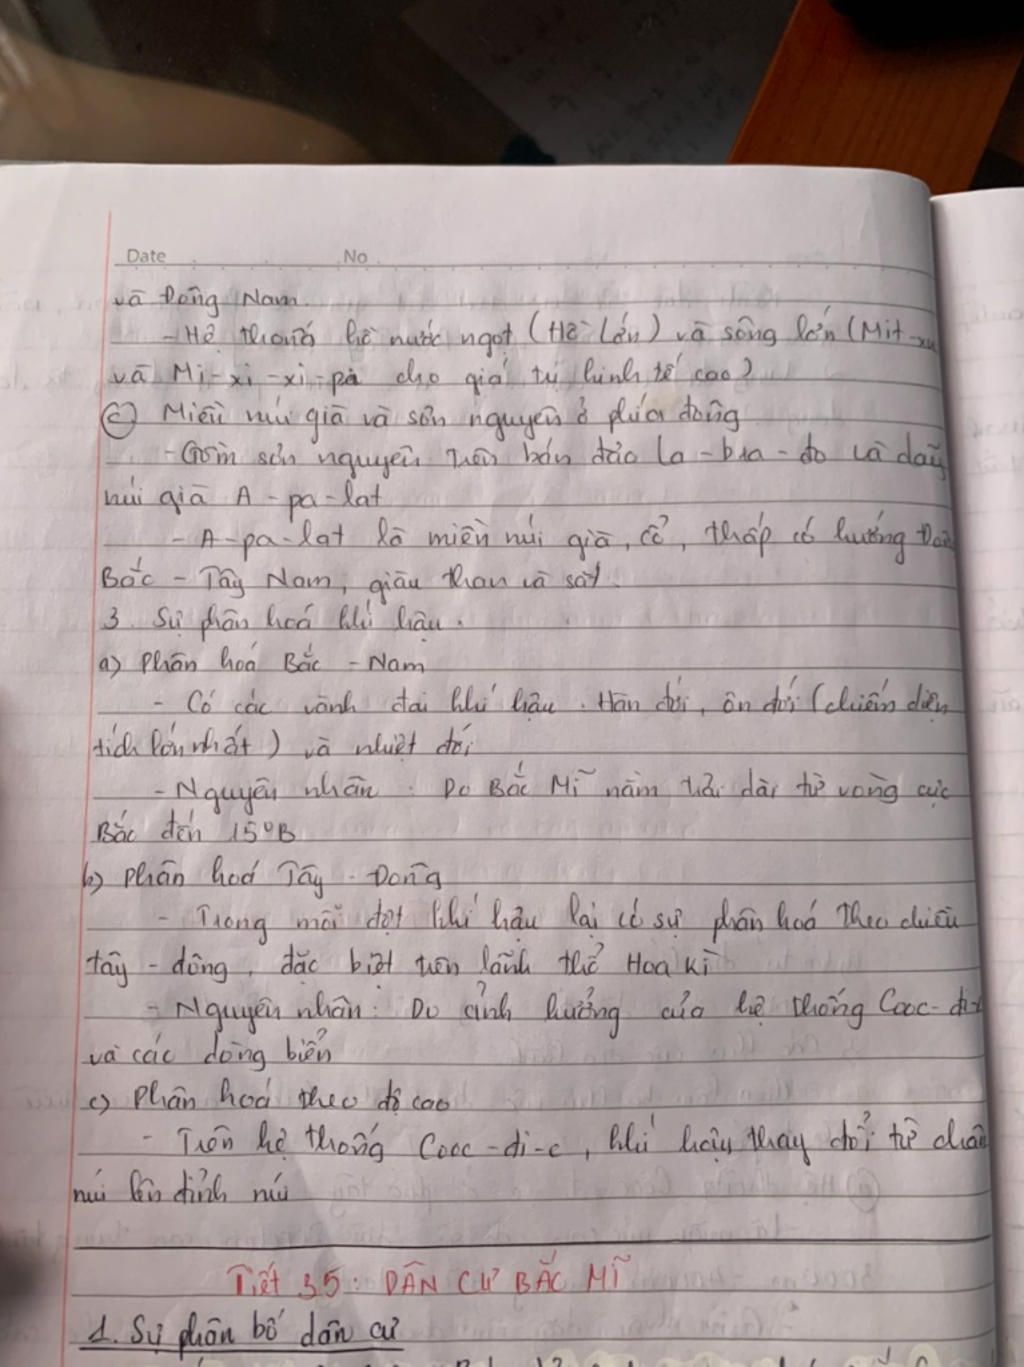 Date No
và Đông Nam.
- Hệ thống hồ nước ngọt (Hồ Lớn) và sông lớn (Mit-xu
và Mi-xi-xi-pi cho giá trị kinh tế cao)
c) Miền núi già và sơn nguyên ở phía đông
- Gồm sơn nguyên trên bán đảo La-bra-đo và dãy
núi già A-pa-lat
- A-pa-lat là miền núi già, cổ, thấp có hướng Đông
Bắc - Tây Nam, giàu than và sắt.
3. Sự phân hoá khí hậu.
a) Phân hoá Bắc - Nam
- Có các vành đai khí hậu: Hàn đới, ôn đới (chiếm diện
tích lớn nhất) và nhiệt đới
- Nguyên nhân: Do Bắc Mĩ nằm trải dài từ vòng cực
Bắc đến 15°B
b) Phân hoá Tây - Đông
- Trong mỗi đợt khí hậu lại có sự phân hoá theo chiều
tây - đông, đặc biệt trên lãnh thổ Hoa Kì
- Nguyên nhân: Do ảnh hưởng của hệ thống Cooc-di-e
và các dòng biển
c) Phân hoá theo độ cao
- Trên hệ thống Cooc-di-e, khí hậu thay đổi từ chân
núi lên đỉnh núi
Tiết 35: DÂN CƯ BẮC MĨ
1. Sự phân bố dân cư